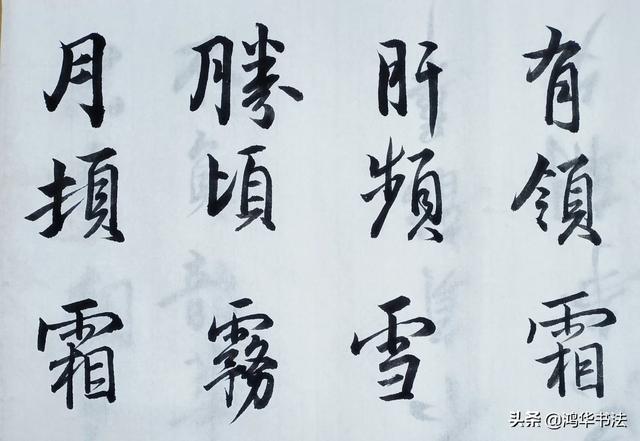 有領霜
肝頻雪
勝頃霧
月霜
头条 @鸿华书法